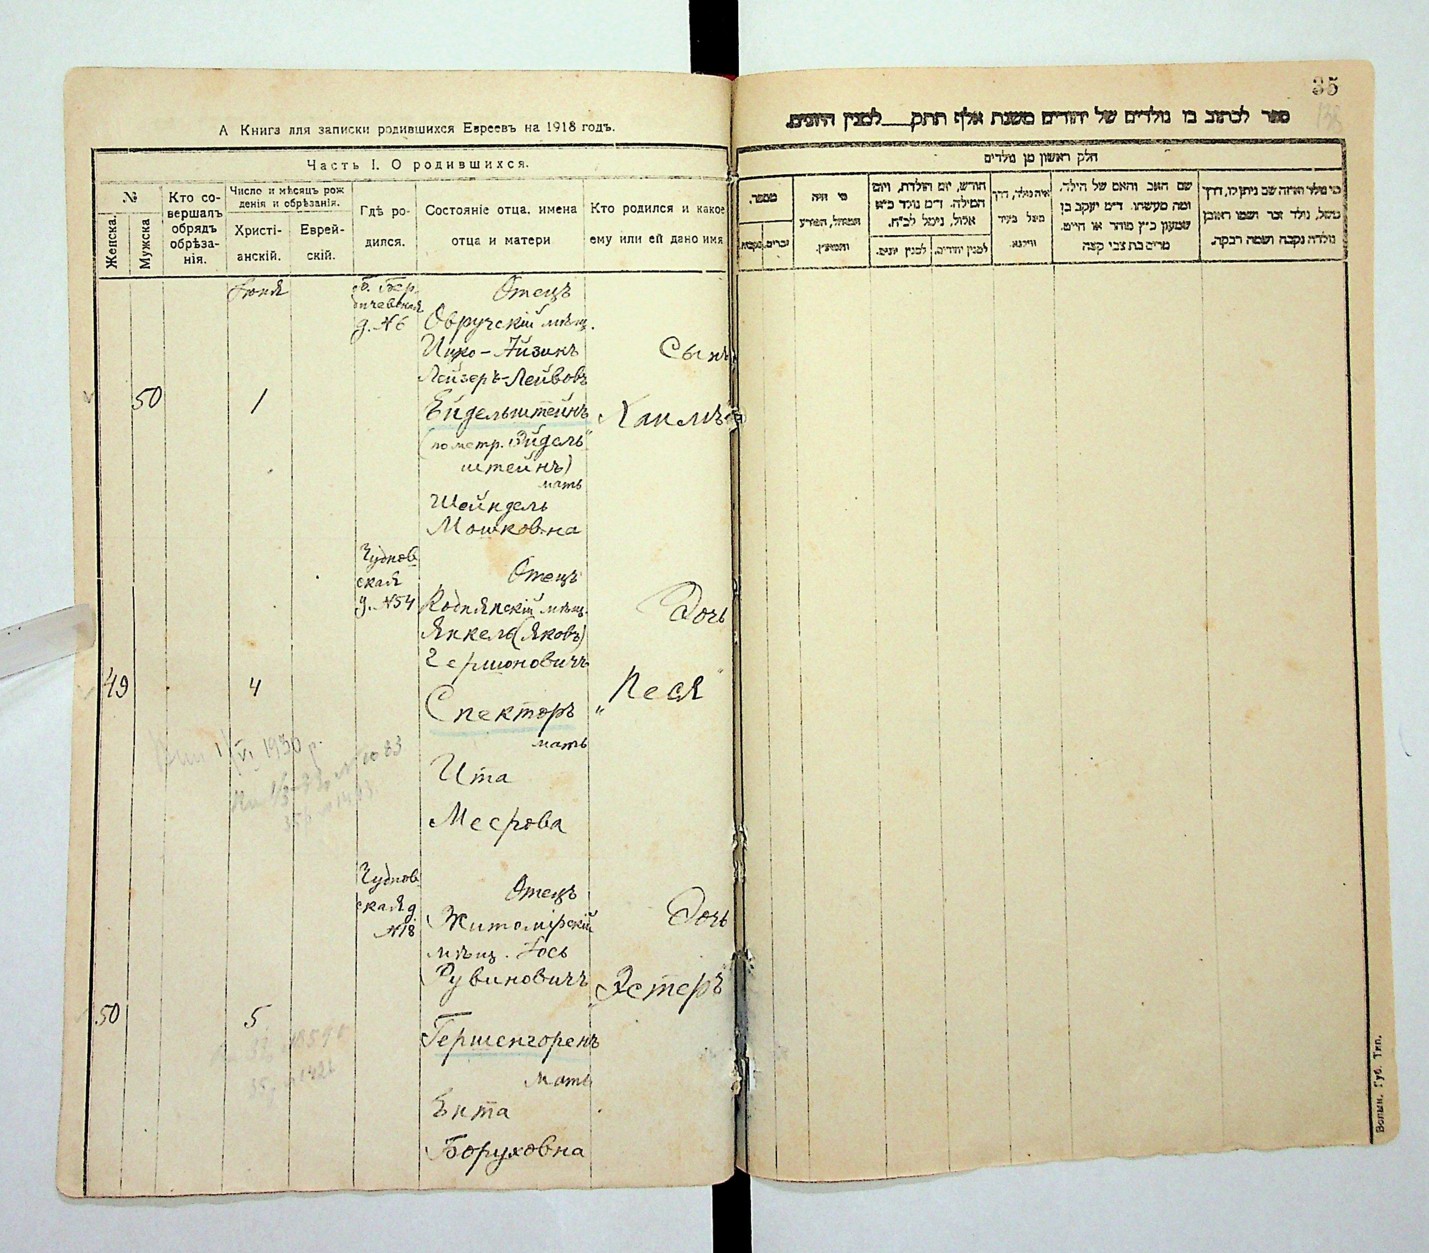 А Книга для записки родившихся Евреевъ на 1918 годъ.
Часть I. О родившихся.
№
Женска.
Мужска
Кто со-
вершалъ
обрядъ
обрѣза-
нія.
Число и мѣсяцъ рож
денія и обрѣзанія.
Христі-
анскій.
Еврей-
скій.
Гдѣ ро-
дился.
Состояніе отца, имена
отца и матери
Кто родился и какое
ему или ей дано имя
Іюня
Б. Бер
дичевская
д. №6
Отецъ
Овручскій мѣщ.
Ицко-Айзикъ
Лейзеръ-Лейбовъ
Сынъ
50
1
Ейдельштейнъ
Хаимъ
(по метр. Эйдель
штейнъ)
мать
Шейндель
Мошковна
Чуднов
ская
д. №54
Отецъ
мѣщ.
Янкель (Яковъ)
Дочь
49
4
Спекторъ
„Песя"
1/VI 1930 г.
мать
Ита
Меерова
Чуднов
ская д
№18
Отецъ
Житомірскій
мѣщ. Іось
Рувиновичъ
Дочь
„Эстеръ"
50
5
Гершенгоренъ
Мать
Ента
Боруховна
35
ספר לכתוב בו נולדים של יהודים משנת אלף תתק___למנין היונים.
חלק ראשון מן נולדים
מספר.
זכרים.
נקבות.
מי היה
המוהל, הפורע
והמוצץ.
חודש, יום הולדת, ויום
המילה. ד״מ נולד כ״א
אלול, נימל לכ״ח.
למנין יונים.
למנין יהודים.
איה נולד, דרך
משל בעיר
ווילנא.
שם האב והאם של הילד.
ומה מעשהו. ד״מ יעקב בן
שמעון כ״ץ סוחר או חייט.
מרים בת צבי קצה
מי נולד ואיזה שם ניתן לו, דרך
משל, נולד זכר ושמו ראובן
נולדה נקבה ושמה רבקה.
Волын. Губ. Тип.